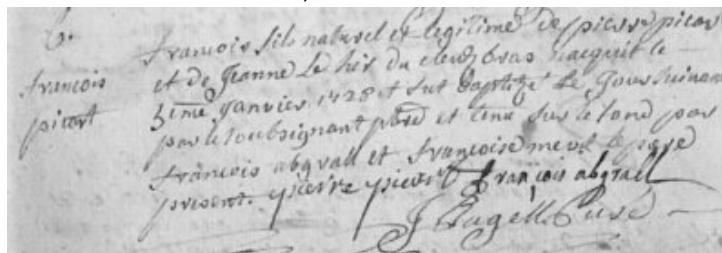 6.
francois
picart
francois fils naturel et legitime de pierre picart
et de Jeanne Le hir du cleuzbras nacquit le
3eme janvier 1728 et fut baptizé Le jour suivant
par le soubsignant pbre et tenu sur le fond par
francois abgrall et francoise le pere
present. pierre picart francois abgrall
Curé